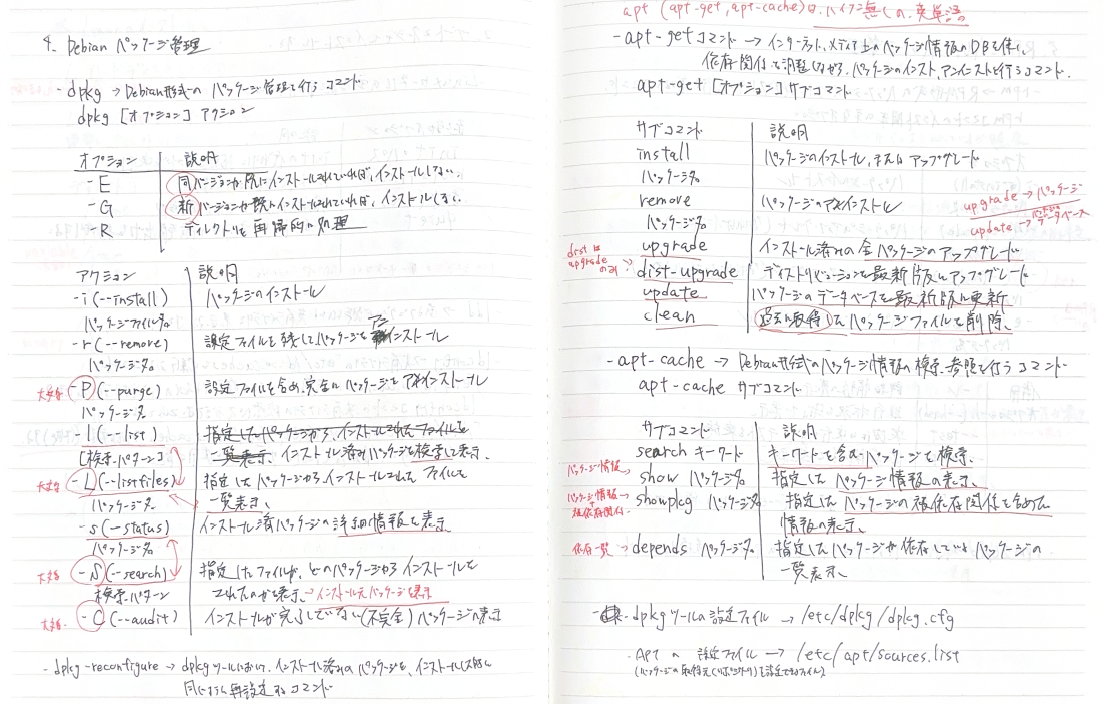 4. Debian パッケージ管理
- dpkg → Debian形式の パッケージ管理を行う コマンド
dpkg [オプション] アクション
オプション 説明
-E 同バージョンが既にインストールされていれば、インストールしない.
-G 新バージョンが既にインストールされていれば、インストールしない.
-R ディレクトリを再帰的に処理
アクション 説明
-i (--install) パッケージのインストール
パッケージファイル名
-r (--remove) 設定ファイルを残してパッケージをアンインストール
パッケージ名
大文字 -P (--purge) 設定ファイルを含め、完全にパッケージをアンインストール
パッケージ名
-l (--list) 指定したパッケージから、インストールされたファイルを
[検索パターン] 一覧表示、インストール済みパッケージを検索して表示、
大文字 -L (--listfiles) 指定したパッケージからインストールされた ファイルを
パッケージ名 一覧表示、
-s (--status) インストール済パッケージの詳細情報を表示、
パッケージ名
大文字 -S (--search) 指定したファイルが、どのパッケージからインストール
検索パターン されたのかを表示、→インストール元パッケージを表示
大文字 -C (--audit) インストールが完了していない(不完全)パッケージの表示
- dpkg-reconfigure → dpkgツールにおいて、インストール済みの パッケージを、インストール時と
同じように再設定するコマンド
apt (apt-get, apt-cache)は、ハイフン無しの、英単語
- apt-getコマンド → インターネット、メディア上のパッケージ情報のDBを使い、
依存関係を調整しながら、パッケージのインスト、アンインストを行うコマンド.
apt-get [オプション] サブコマンド
サブコマンド 説明
install パッケージのインストール、または アップグレード
パッケージ名
remove パッケージのアンインストール
パッケージ名
upgrade → パッケージ
update → パッケージのデータベース
dist は upgrade のみ!
upgrade インストール済みの全パッケージのアップグレード
dist-upgrade ディストリビューションを最新版にアップグレード
update パッケージのデータベースを最新版に更新
clean 過去に取得したパッケージファイルを削除、
- apt-cache → Debian形式のパッケージ情報の検索・参照を行うコマンド
apt-cache サブコマンド
サブコマンド 説明
search キーワード キーワードを含むパッケージを検索、
パッケージ情報→ show パッケージ名 指定したパッケージ情報の表示、
パッケージ情報 + 被依存関係 → showpkg パッケージ名 指定したパッケージの被依存関係を含めた
情報の表示、
依存一覧→ depends パッケージ名 指定したパッケージが依存しているパッケージの
一覧表示、
- dpkgツールの設定ファイル → /etc/dpkg/dpkg.cfg
・Apt の 設定ファイル → /etc/apt/sources.list
(パッケージの取得元(リポジトリ)を設定するファイル)